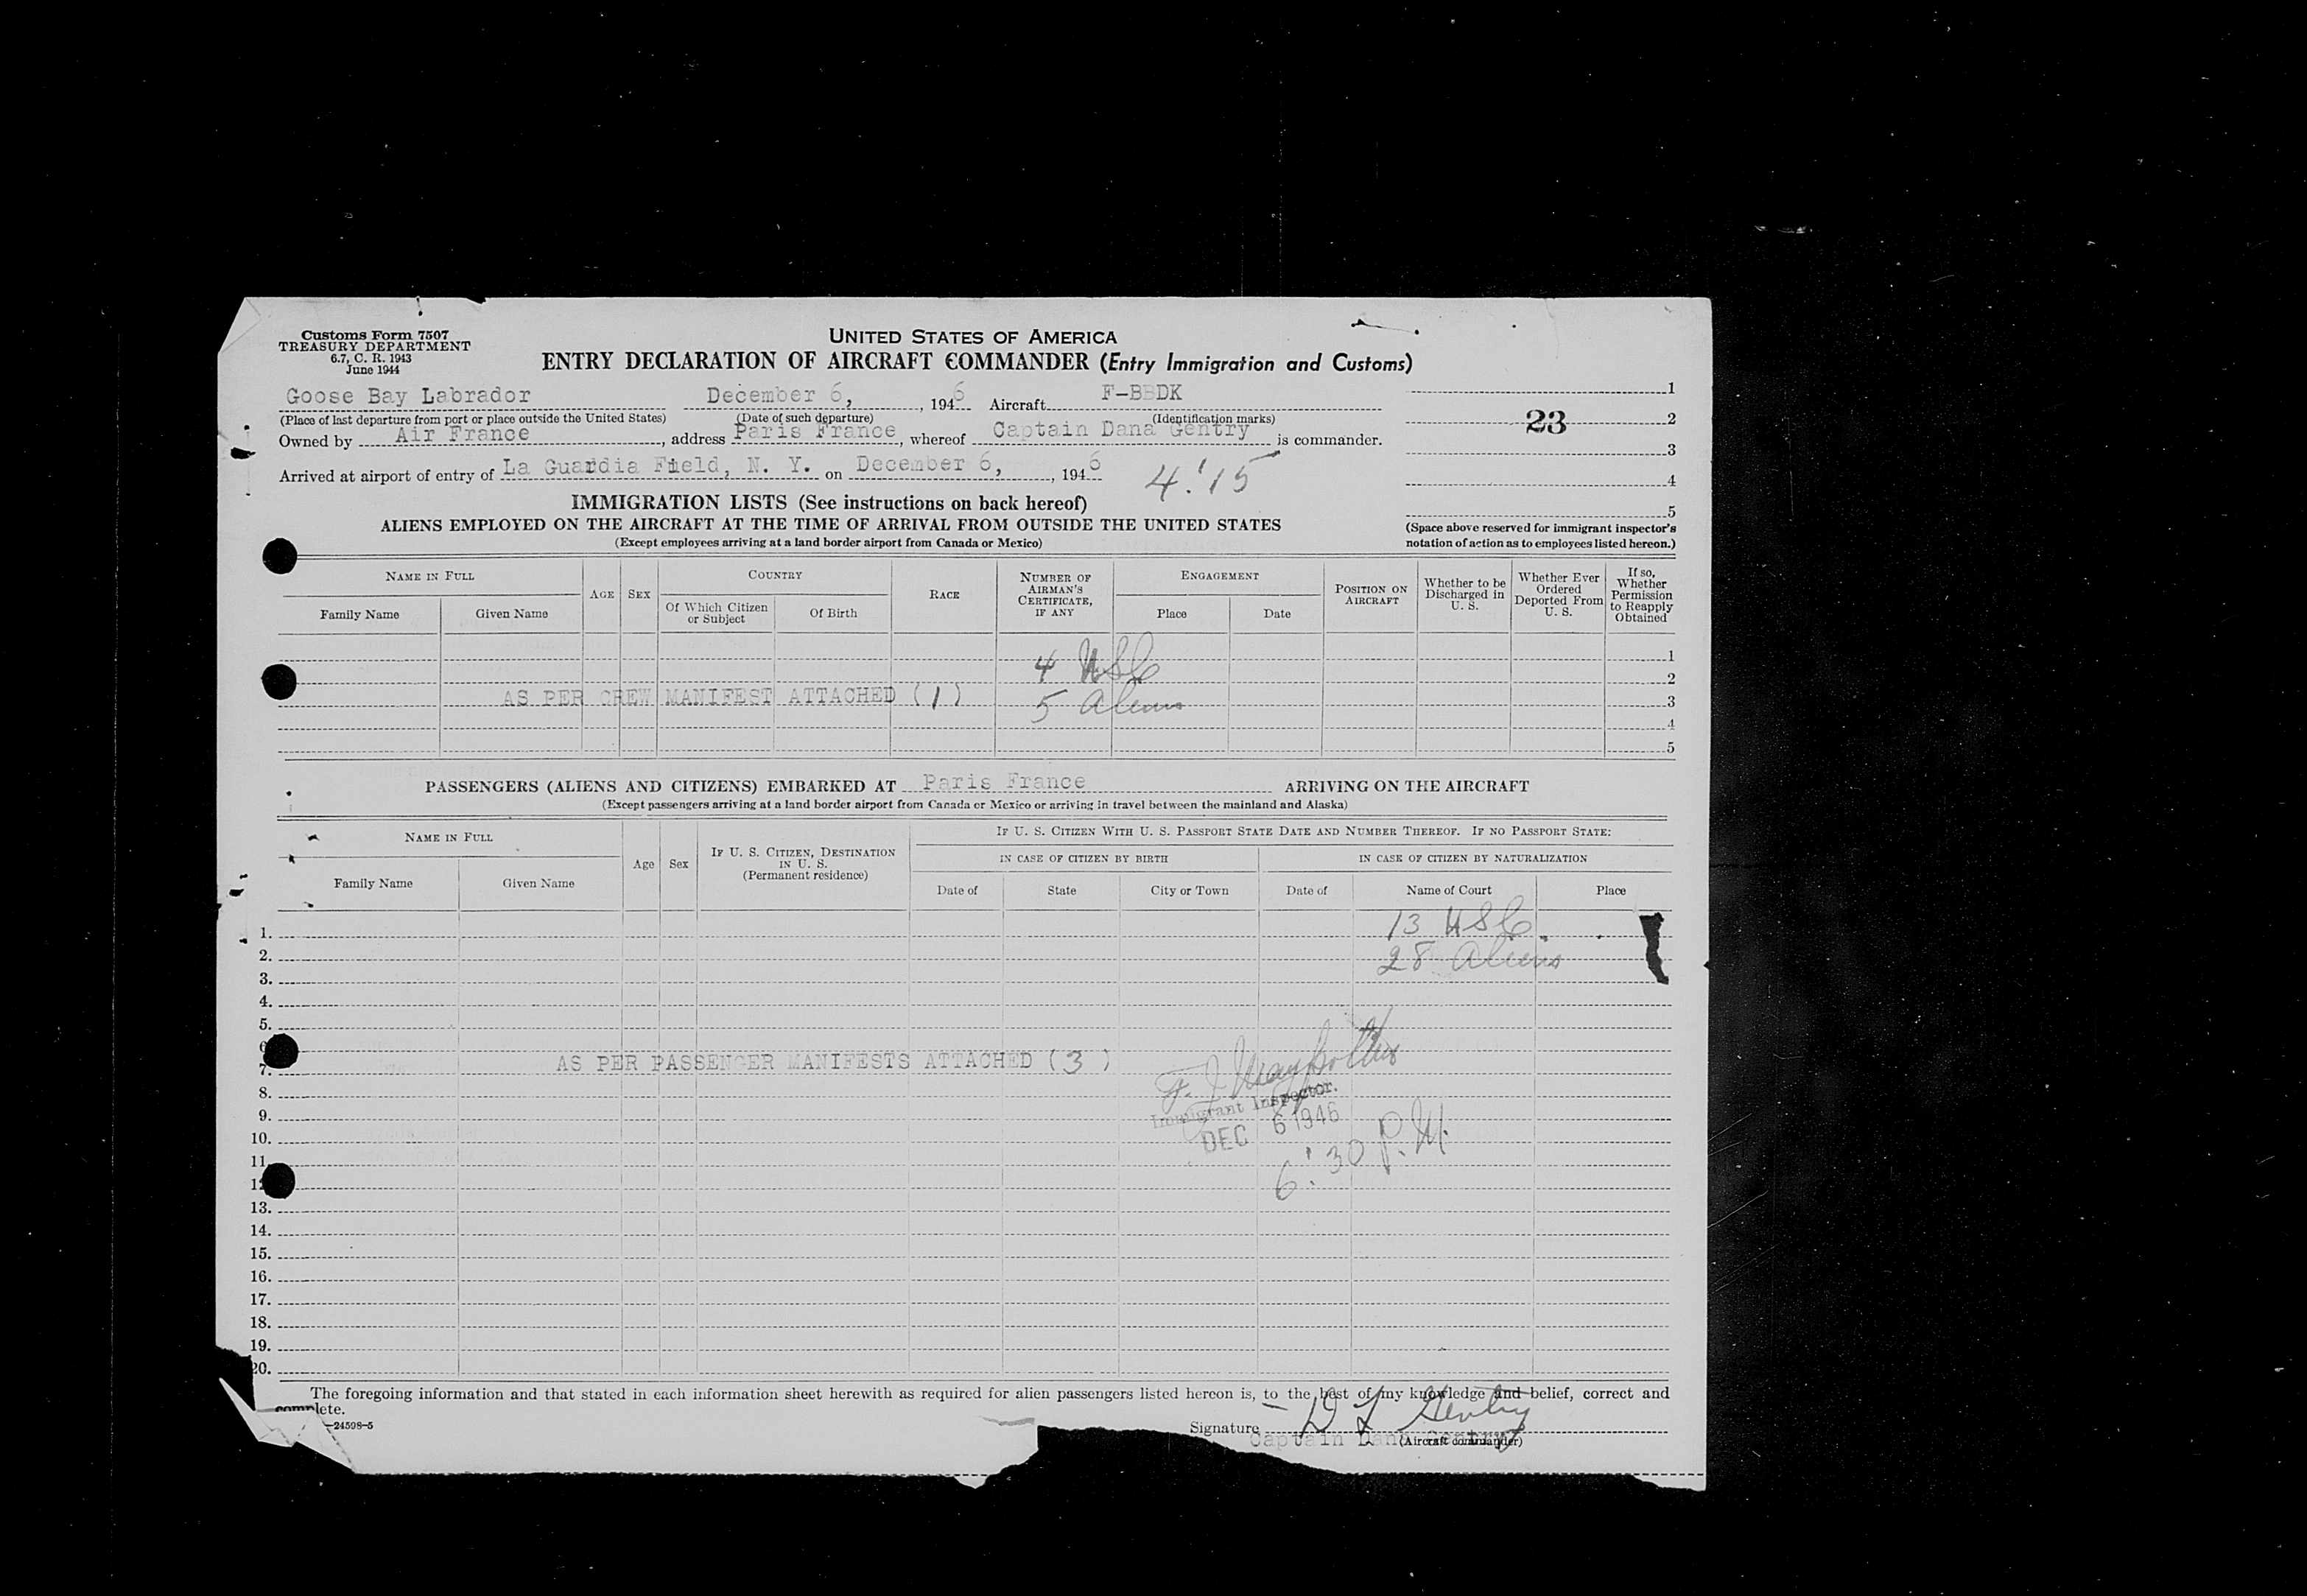 Customs Form 7507
TREASURY DEPARTMENT
6.7, C. R. 1943
June 1944
UNITED STATES OF AMERICA
ENTRY DECLARATION OF AIRCRAFT COMMANDER (Entry Immigration and Customs)
Goose Bay Labrador December 6, , 1946 Aircraft F-BBDK
(Place of last departure from port or place outside the United States) (Date of such departure) (Identification marks)
Owned by Air France , address Paris France , whereof Captain Dana Gentry is commander.
Arrived at airport of entry of La Guardia Field, N. Y. on December 6, , 1946 4:15
1
23 2
3
4
5
(Space above reserved for immigrant inspector's
notation of action as to employees listed hereon.)
IMMIGRATION LISTS (See instructions on back hereof)
ALIENS EMPLOYED ON THE AIRCRAFT AT THE TIME OF ARRIVAL FROM OUTSIDE THE UNITED STATES
(Except employees arriving at a land border airport from Canada or Mexico)
NAME IN FULL
Family Name Given Name
AGE
SEX
COUNTRY
Of Which Citizen or Subject
Of Birth
RACE
NUMBER OF AIRMAN'S CERTIFICATE, IF ANY
ENGAGEMENT
Place Date
POSITION ON AIRCRAFT
Whether to be Discharged in U. S.
Whether Ever Ordered Deported From U. S.
If so, Whether Permission to Reapply Obtained
4 USC 1
2
AS PER CREW MANIFEST ATTACHED (1) 5 Aliens 3
4
5
PASSENGERS (ALIENS AND CITIZENS) EMBARKED AT Paris France ARRIVING ON THE AIRCRAFT
(Except passengers arriving at a land border airport from Canada or Mexico or arriving in travel between the mainland and Alaska)
NAME IN FULL
Family Name Given Name
Age
Sex
IF U. S. CITIZEN, DESTINATION IN U. S.
(Permanent residence)
IF U. S. CITIZEN WITH U. S. PASSPORT STATE DATE AND NUMBER THEREOF. IF NO PASSPORT STATE:
IN CASE OF CITIZEN BY BIRTH IN CASE OF CITIZEN BY NATURALIZATION
Date of State City or Town Date of Name of Court Place
1. 13 USC.
2. 28 Aliens
3.
4.
5.
6
7. AS PER PASSENGER MANIFESTS ATTACHED (3)
8. Immigrant Inspector.
9. DEC 6 1946
10.
11. 6:30 P.M.
12
13.
14.
15.
16.
17.
18.
19.
20.
The foregoing information and that stated in each information sheet herewith as required for alien passengers listed hereon is, to the best of my knowledge and belief, correct and
complete.
—24598-5
Signature D L Gentry
Captain Dana Gentry (Aircraft commander)